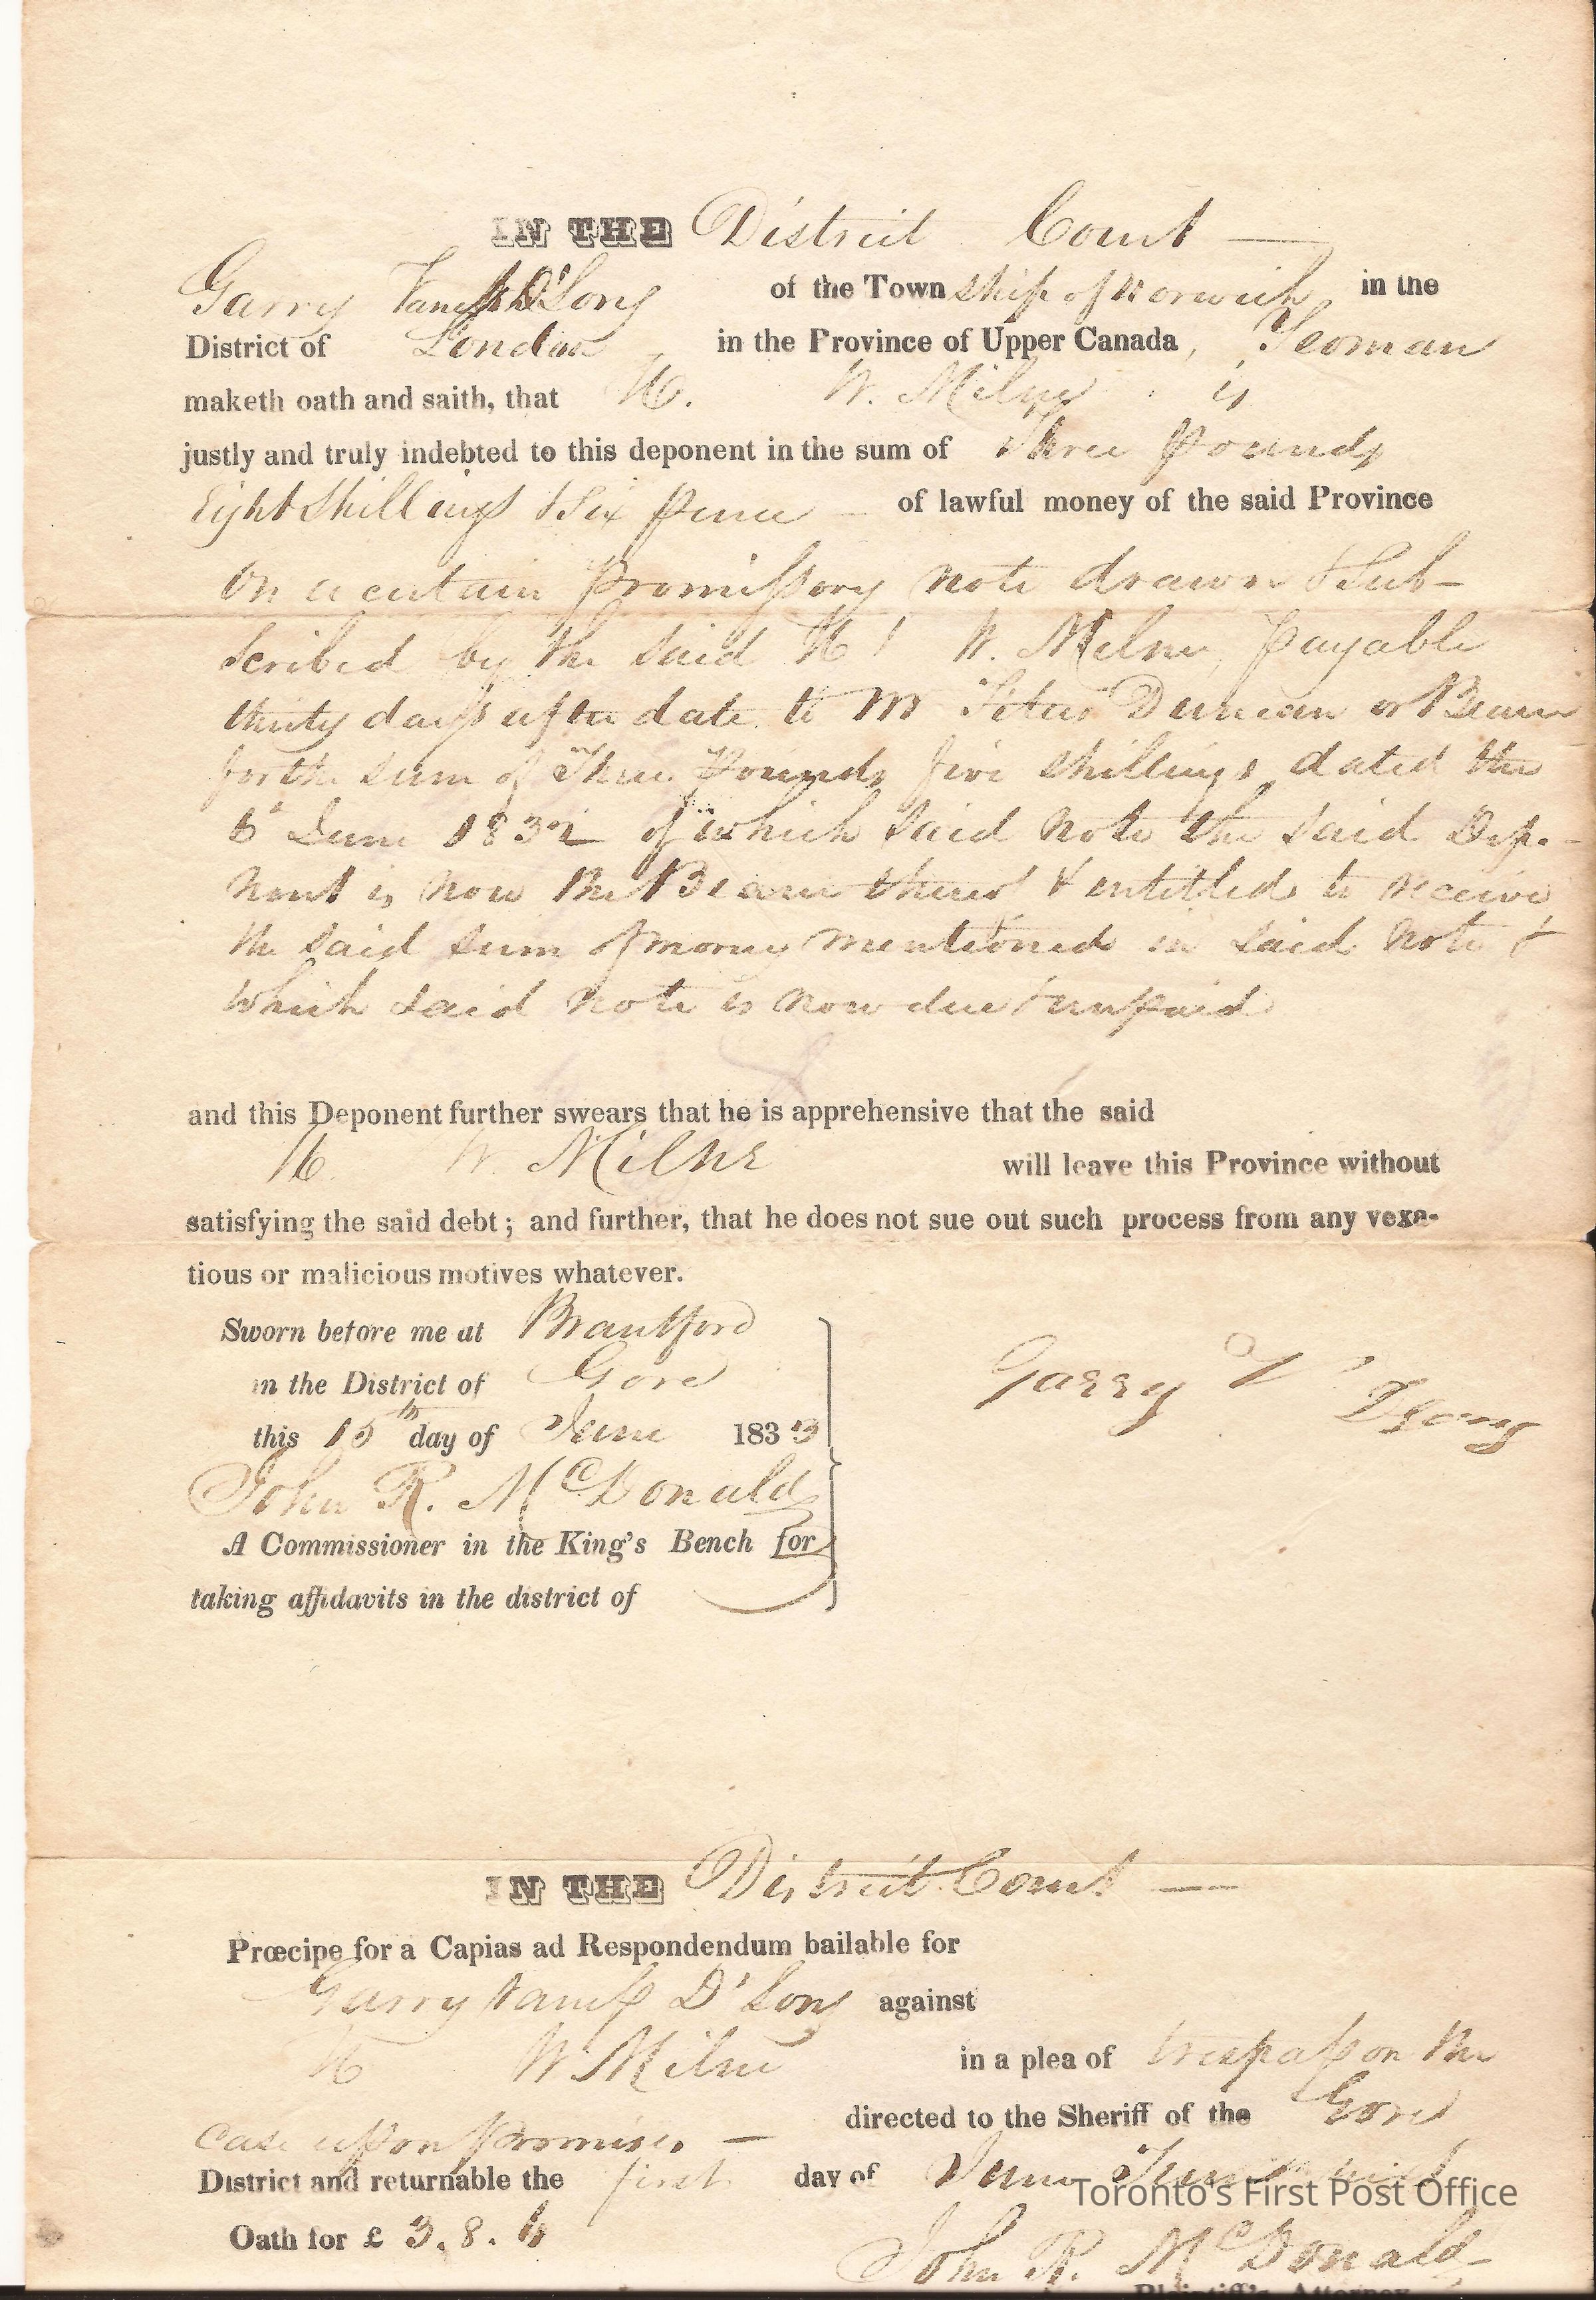 IN THE District Court
Garry D'Long of the Township of Norwich, in the
District of London, in the Province of Upper Canada, Yeoman
maketh oath and saith, that W. Milne is
justly and truly indebted to this deponent in the sum of Three Pounds
Eight Shillings & Six pence — of lawful money of the said Province
On a certain Promissory note drawn & Sub-
scribed by the said W. Milne, payable
thirty days after date to Mr Duncan or Bearer
for the sum of Three Pounds five shillings dated the
6th June 1832 of which said note the said Depo-
nent is now the Bearer thereof & entitled to receive
the said sum of money mentioned in said note &
which said note is now due & unpaid
and this Deponent further swears that he is apprehensive that the said
W. Milne will leave this Province without
satisfying the said debt; and further, that he does not sue out such process from any vexa-
tious or malicious motives whatever.
Sworn before me at Brantford
in the District of Gore
this 15th day of June 1833
Garry V D Long
John R. McDonald
A Commissioner in the King's Bench for
taking affidavits in the district of
IN THE District Court —
Præcipe for a Capias ad Respondendum bailable for
Garry D'Long against
W Milne in a plea of trespass on the
case upon promises — directed to the Sheriff of the Gore
District and returnable the first day of June Term
Oath for £ 3. 8. 6
John R. McDonald
Plaintiff's Attorney
Toronto's First Post Office